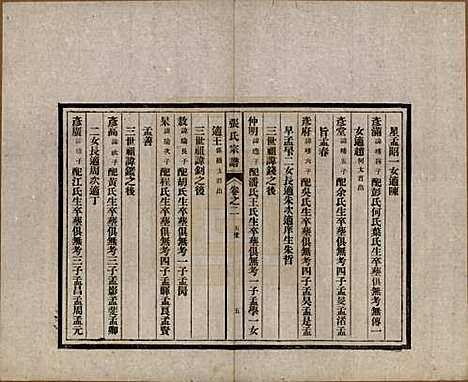 星孟昭一女適陳
彥滿諱 子配彭氏何氏葉氏生卒塟俱無考無傳一
女適趙何太君出
彥堂諱 五子配余氏生卒塟俱無考四子孟旻孟渚孟
旨孟春
彥府諱 六子配吳氏生卒塟俱無考四子孟昊孟是孟
早孟星二女長適朱次適庠生朱哲
三世祖諱錢之後
仲明諱 子配潘氏王氏生卒塟俱無考一子孟學一女
適王 太君出
張氏宗譜
卷之二
五
三世祖諱釗之後
敖諱瑜長子配胡氏生卒塟俱無考一子孟閔
杲諱瑜次子配程氏生卒塟俱無考三子孟暉孟良孟賢
孟善
三世祖諱鑑之後
彥高諱 子配黃氏生卒塟俱無考三子孟影孟斐孟卿
二女長適周次適丁
彥廣諱 子配江氏生卒塟俱無考三子孟昌孟周孟元